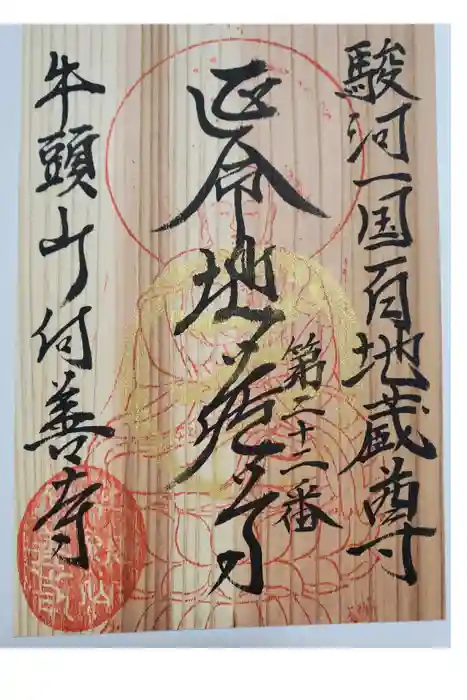 駿河一国百地蔵尊
第二十二番
延命地蔵尊
牛頭山得善寺